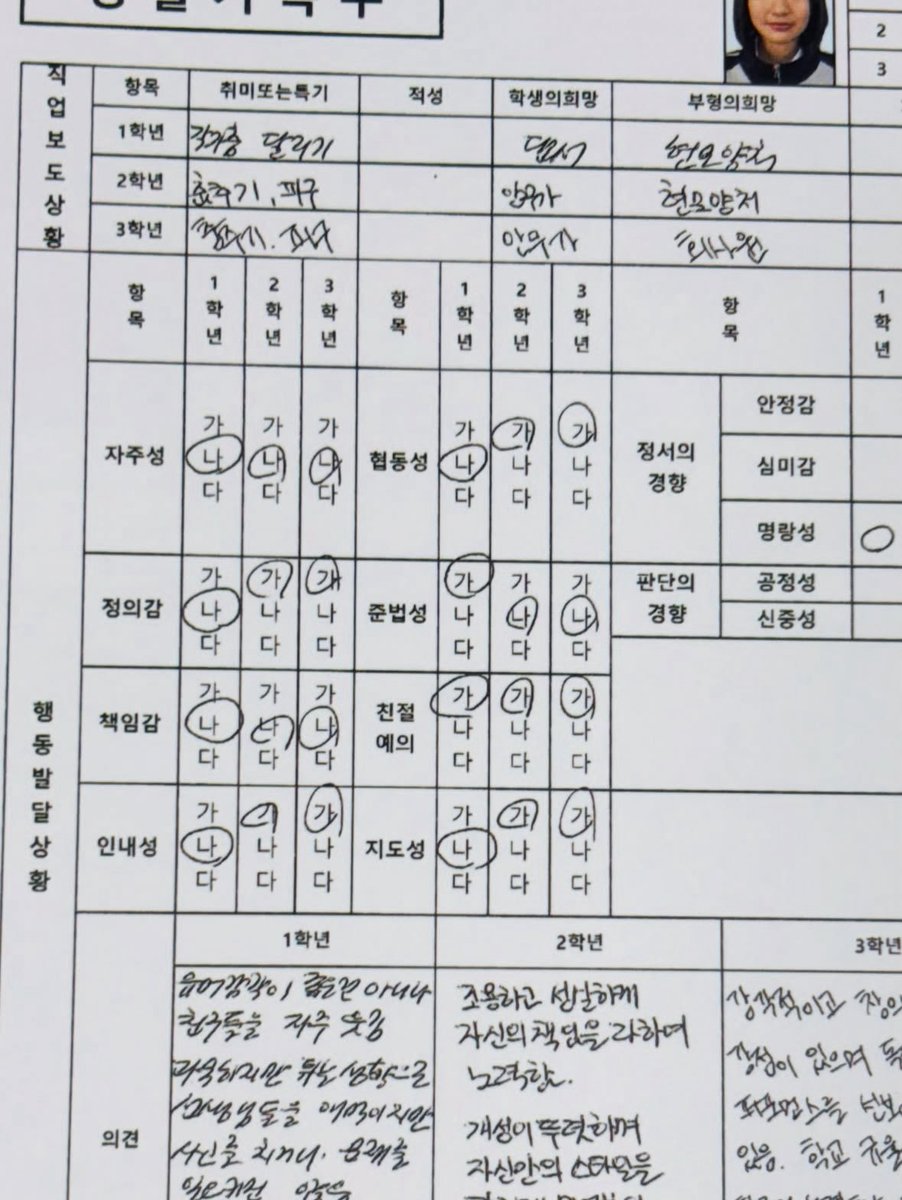 2
3
직업보도상황
항목 취미또는특기 적성 학생의희망 부형의희망
1학년 달리기 댄서 현모양처
2학년 춤추기, 피구 안무가 현모양처
3학년 춤추기, 피구 안무가 회사원
행동발달상황
항목 1학년 2학년 3학년 항목 1학년 2학년 3학년 항목 1학년
자주성 가 가 가 협동성 가 가 가 정서의 경향 안정감
나 나 나 나 나 나 심미감
다 다 다 다 다 다 명랑성
정의감 가 가 가 준법성 가 가 가 판단의 경향 공정성
나 나 나 나 나 나 신중성
다 다 다 다 다 다
책임감 가 가 가 친절 예의 가 가 가
나 나 나 나 나 나
다 다 다 다 다 다
인내성 가 가 가 지도성 가 가 가
나 나 나 나 나 나
다 다 다 다 다 다
의견
1학년 2학년 3학년
유머감각이 좋은건 아니나
친구들을 자주 웃김
과묵하지만 튀는 성향으로
선생님들을 애먹이지만
사건을 치거나, 문제를
일으키진 않음
조용하고 성실하게
자신의 책임을 다하며
노력함.
개성이 뚜렷하며
자신만의 스타일을
감각적이고 창의
감성이 있으며 독
퍼포먼스를 선보
있음. 학교 규율